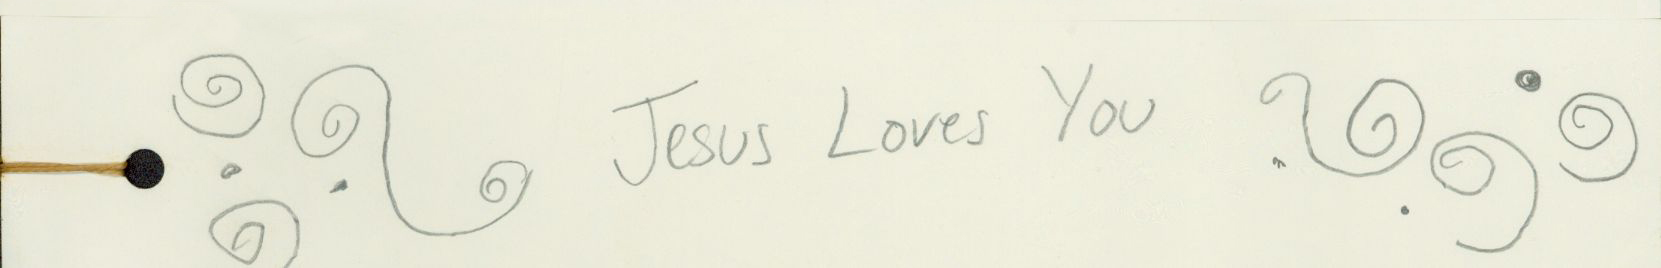 Jesus Loves You